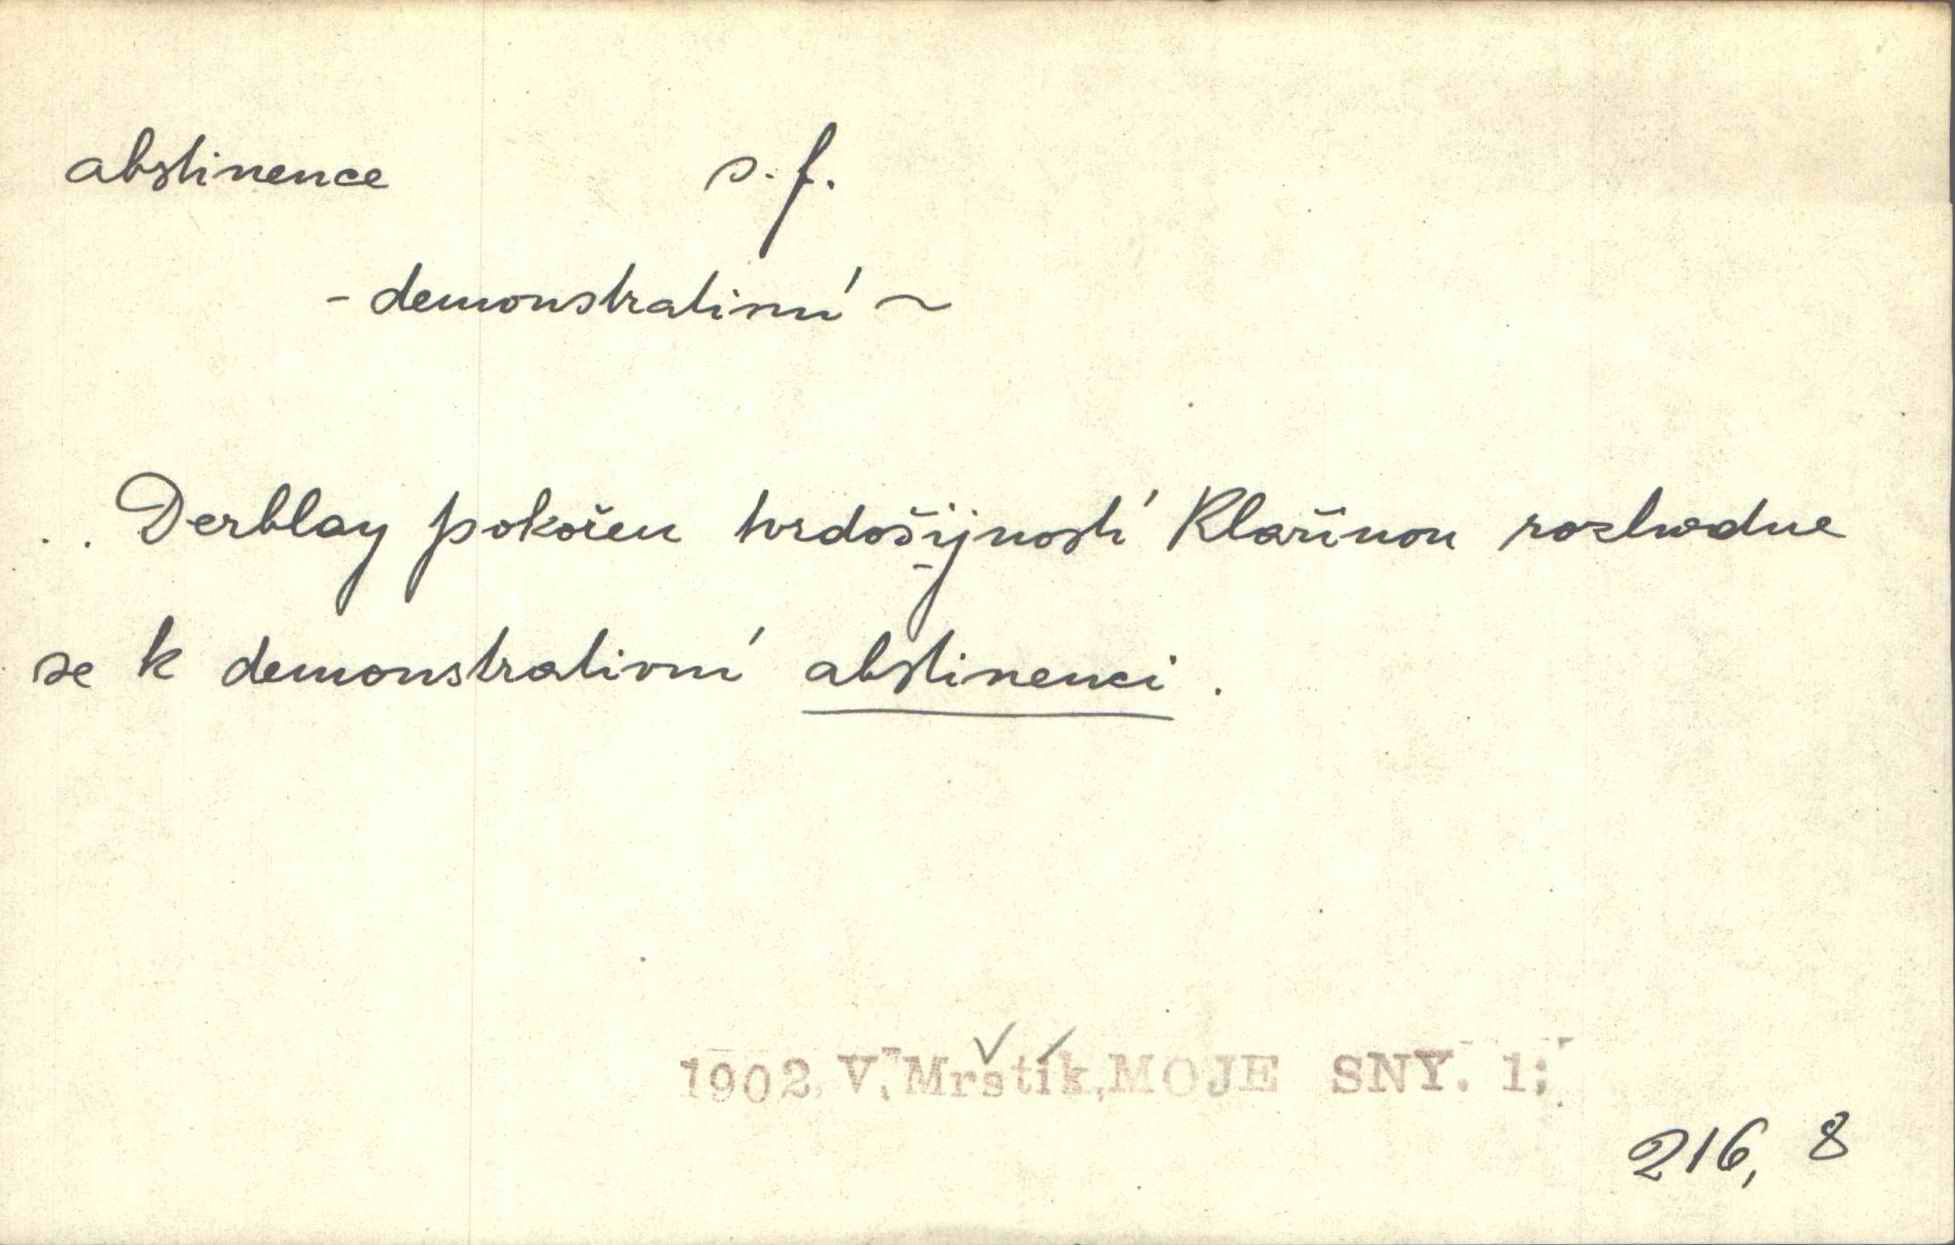 abstinence s. f.
- demonstrativní ~
.. Derblay pokořen tvrdošijností Klařinou rozhodne
se k demonstrativní abstinenci.
1902 V. Mrštík, MOJE SNY. 1;
216, 8